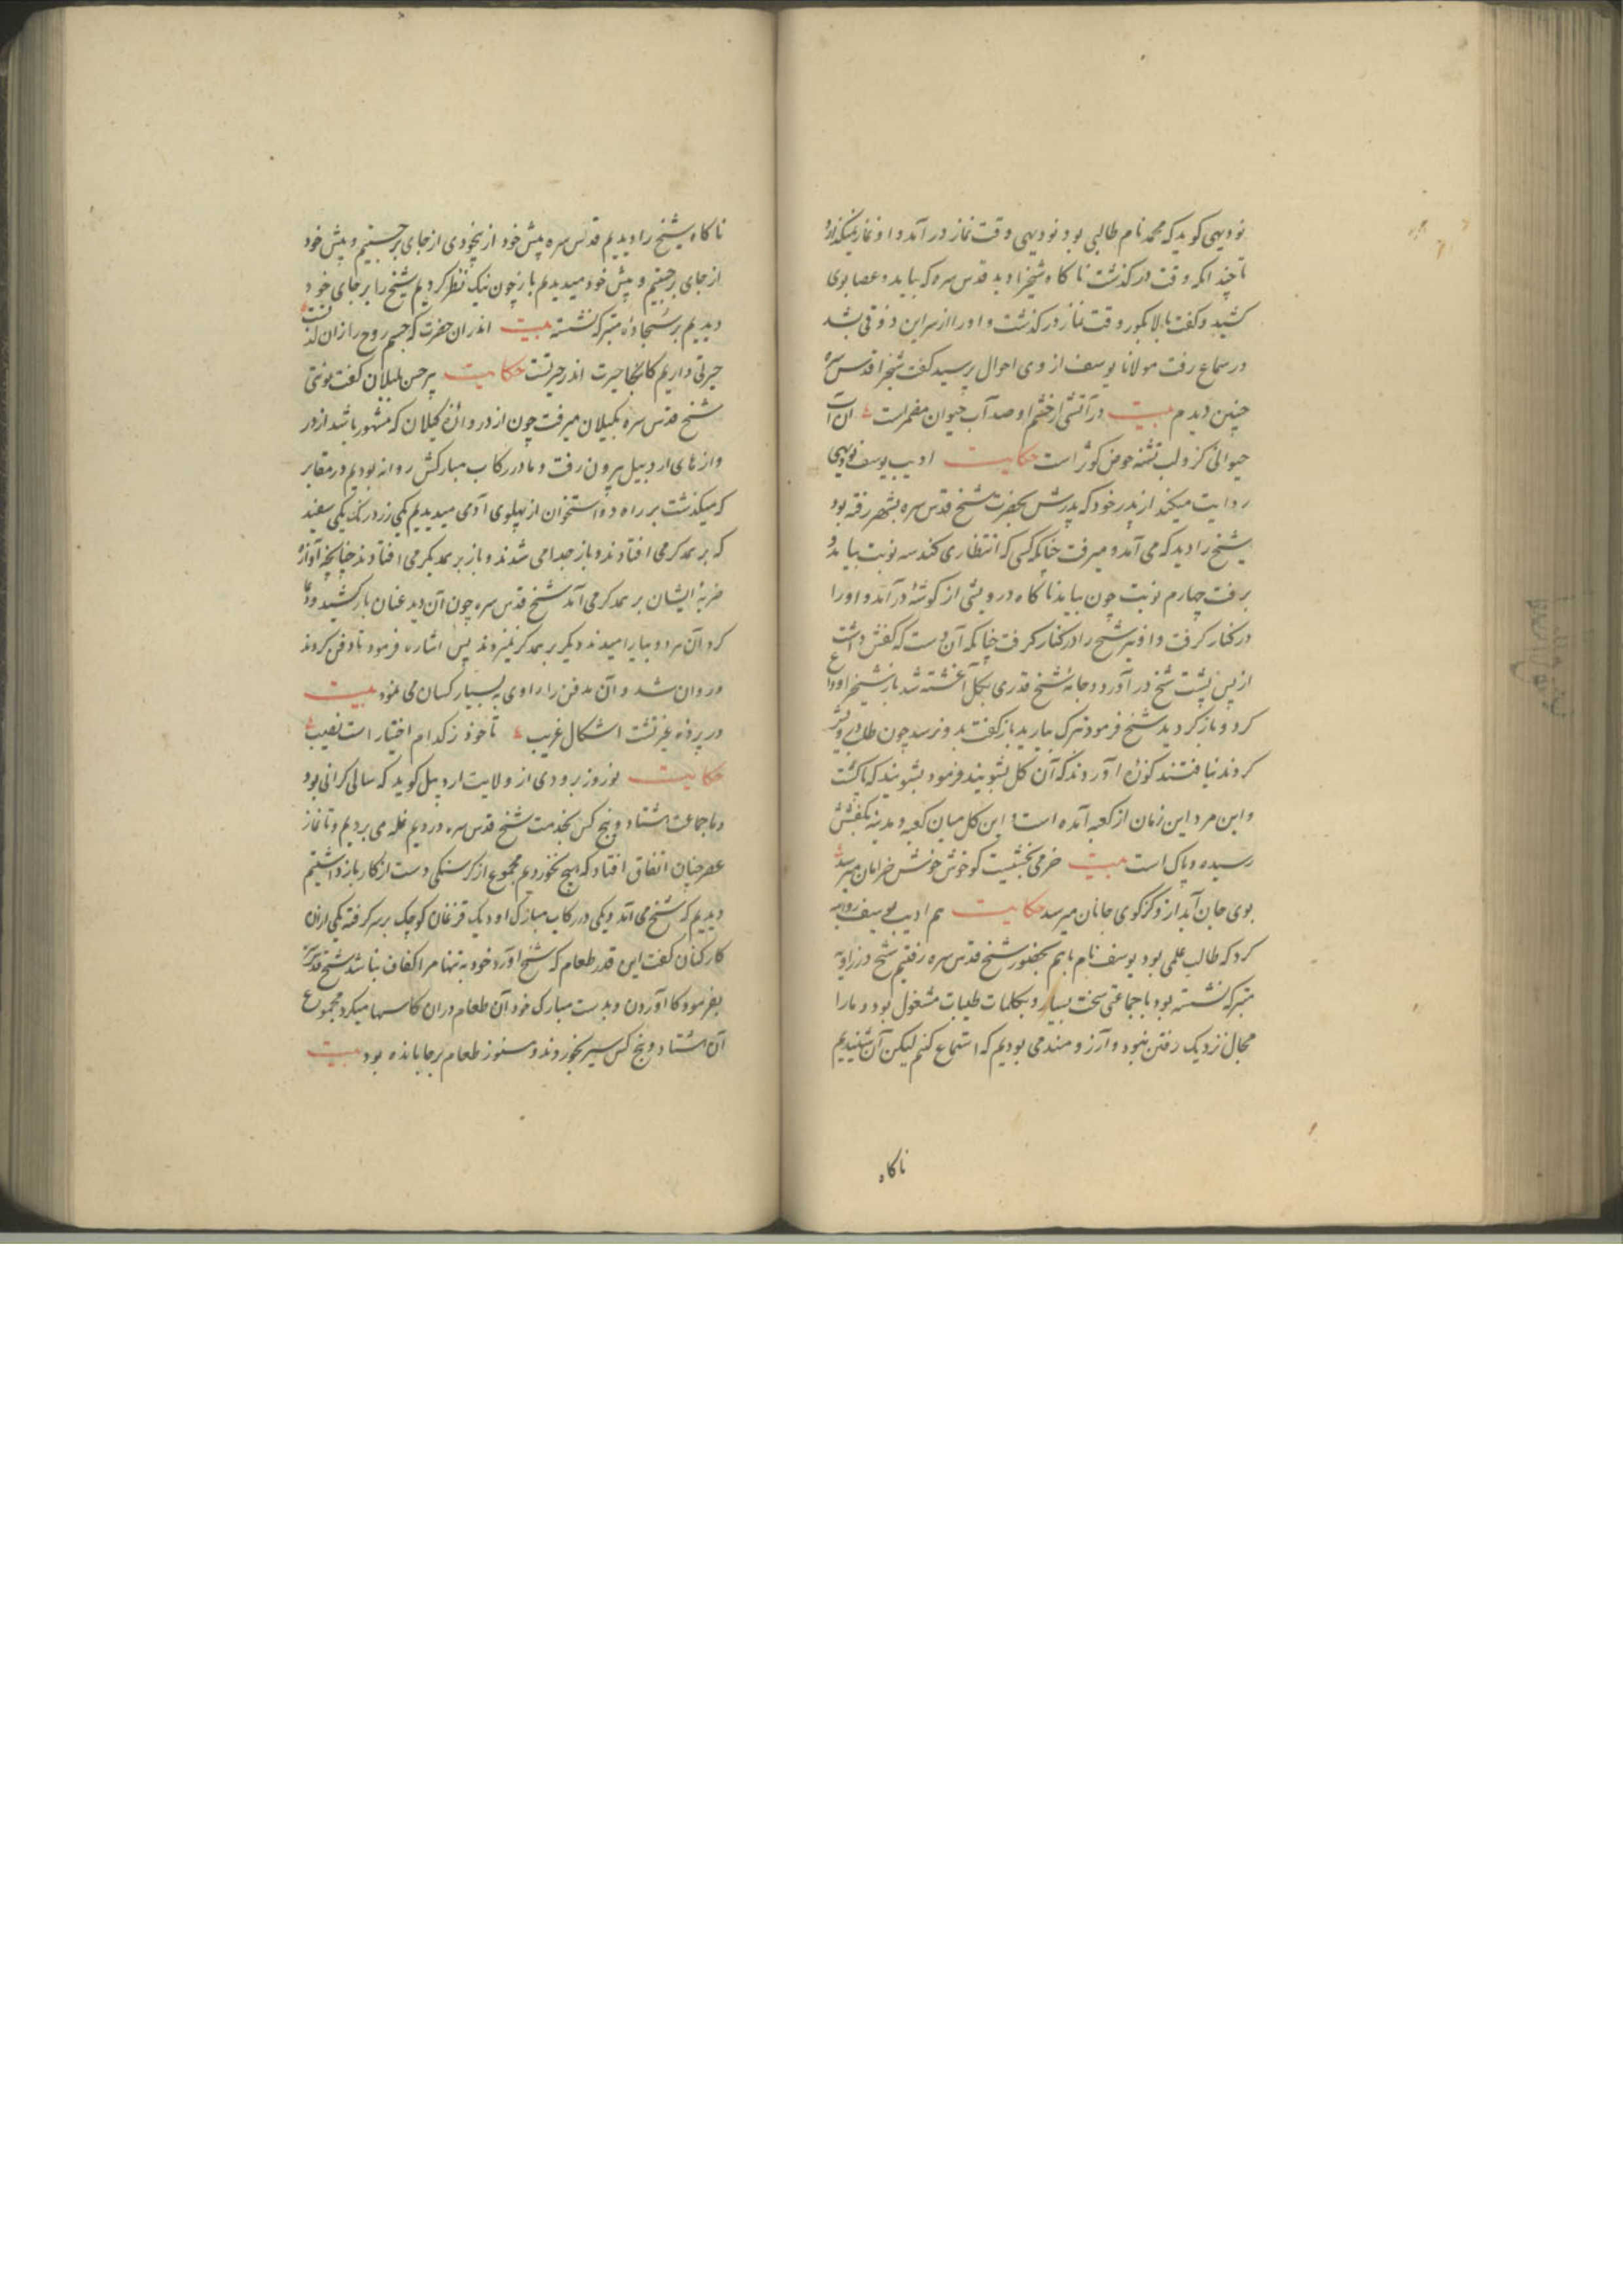 نودیهی کوید که محمد نام طالبی بود نودیهی وقت نماز در آمد و او نماز نمیکند
تا چندانکه وقت در کذشت ناکاه شیخ را دید قدس سره که بیاید و عصا بوی
کشید و کفت وقت نماز در کذشت و او را از سر این ذوقی بشد
در سماع رفت مولانا یوسف از وی احوال پرسید کفت شیخ را قدس سره
چنین دیدم بیت در آتشی از خشم او صد آب حیوان مضمر است آن آب
حیوانی کزو لب تشنه حوض کوثر است حکایت ادیب یوسف نودیهی
روایت میکند از پدر خود که پدرش بحضرت شیخ قدس سره بشهر رفته بود
شیخ را دید که می آمد و میرفت چنانکه کسی که انتظاری کند سه نوبت بیاید و
برفت چهارم نوبت چون بیاید ناکاه درویشی از کوشه در آمد و او را
در کنار کرفت و او نیز شیخ را در کنار کرفت چنانکه آن دست که کفش داشت
از پس پشت شیخ در آورد و جامه شیخ قدری بکل آغشته شد باز شیخ او را وداع
کرد و باز کردید شیخ فرمود بیارید باز کفت بدو نرسد چون طلب
کردند نیافتند کوزه آوردند که آن کل بشویند فرمود بشویند که پاکست
و این مرد این زمان از کعبه آمده است و این کل میان کعبه و مدینه بکفشش
رسیده و پاک است بیت خرمی بخشیست کو خوش خوش خرامان میرسد
بوی جان آید ازو کز کوی جانان میرسد حکایت هم ادیب یوسف روایت
کرد که طالب علمی بود یوسف نام با هم بحضور شیخ قدس سره رفتیم شیخ در زاویه
متبرکه نشسته بود با جماعتی سخت بسیار و بکلمات طیبات مشغول بود و ما را
مجال نزدیک رفتن نبود و آرزومند می بودیم که استماع کنیم لیکن آن شنیدیم
ناکاه
ناکاه شیخ را دیدیم قدس سره پیش خود از بیخودی از جای برجستیم و پیش خود
از جای برجستیم و پیش خود میدیدیم باز چون نیک نظر کردیم شیخ را بر جای خود
دیدیم بر سجاده متبرکه نشسته بیت اندران حضرت که جسم روح را زان
حیرتی داریم کانجا حیرت اندر حیرتست حکایت پیر حسن کفت نوبتی
شیخ قدس سره بکیلان میرفت چون از دروازه کیلان که مشهور باشد از در
وازهای اردبیل بیرون رفت و ما در رکاب مبارکش روانه بودیم در مقابر
که میکذشت بر راه دو استخوان از پهلوی آدمی میدیدیم یکی زرد رنک یکی سفید
که بر همدکر می افتادند و باز جدا می شدند و باز بر همدیکر می افتادند چنانچه آواز
ضربه ایشان بر همدکر می آمد شیخ قدس سره چون آن دید عنان باز کشید و دعا
کرد آن هر دو بیارامیدند دیکر بر همدکر نیزدند پس اشاره فرمود تا دفن کردند
و روان شد و آن مدفن را راوی به بسیار کسان می نمود بیت
در پرده غیرتست اشکال غریب تا خود ز کدام اختیار است نصیب
حکایت نوروز برودی از ولایت اردبیل کوید که سالی کرانی بود
و با جماعت هشتاد و پنج کس بخدمت شیخ قدس سره درویم غله می بردیم و تا نماز
عصر چنان اتفاق افتاد که هیچ نخوردیم مجموع از کرسنکی دست از کار باز داشتیم
دیدیم که شیخ می آمد و یکی در رکاب مبارک او دیک قزغان کوچک بر سر کرفته یکی ازین
کارکنان کفت این قدر طعام که شیخ آورد خود به تنها مرا کفاف نباشد شیخ قدس سره
بفرمود کا آوردن و بدست مبارک خود آن طعام در ان کاسها میکرد مجموع
آن هشتاد و پنج کس سیر بخوردند و هنوز طعام بر جا مانده بود بیت